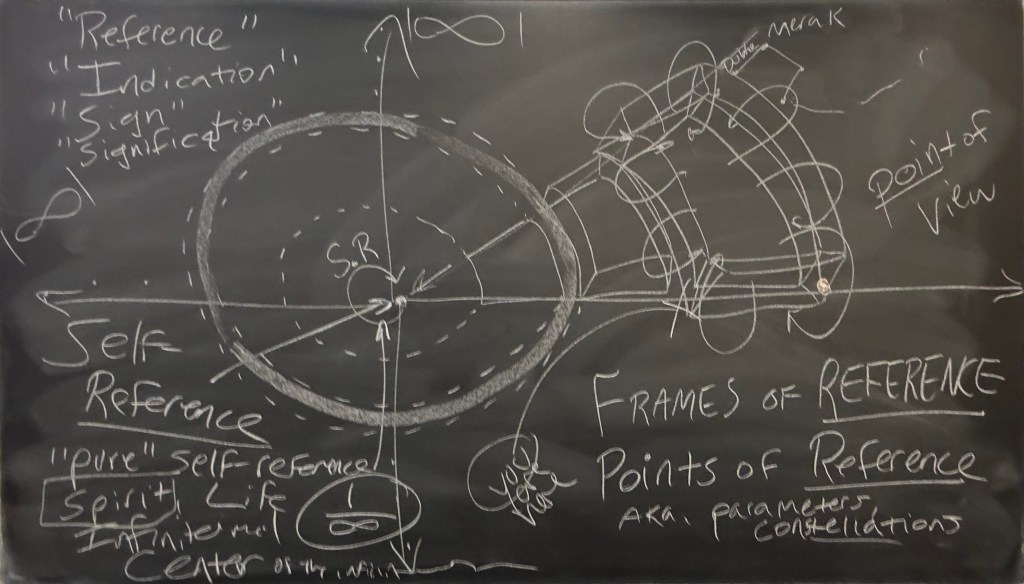 "Reference"
"Indication"
"Sign"
"Signification"
|∞|
|∞|
Merak
Point of
View
S.R
Self
Reference
"pure" self reference
Spirit Life
Infinitesimal
Center of the
1
∞
FRAMES OF REFERENCE
Points of Reference
AKA. parameters
constellations